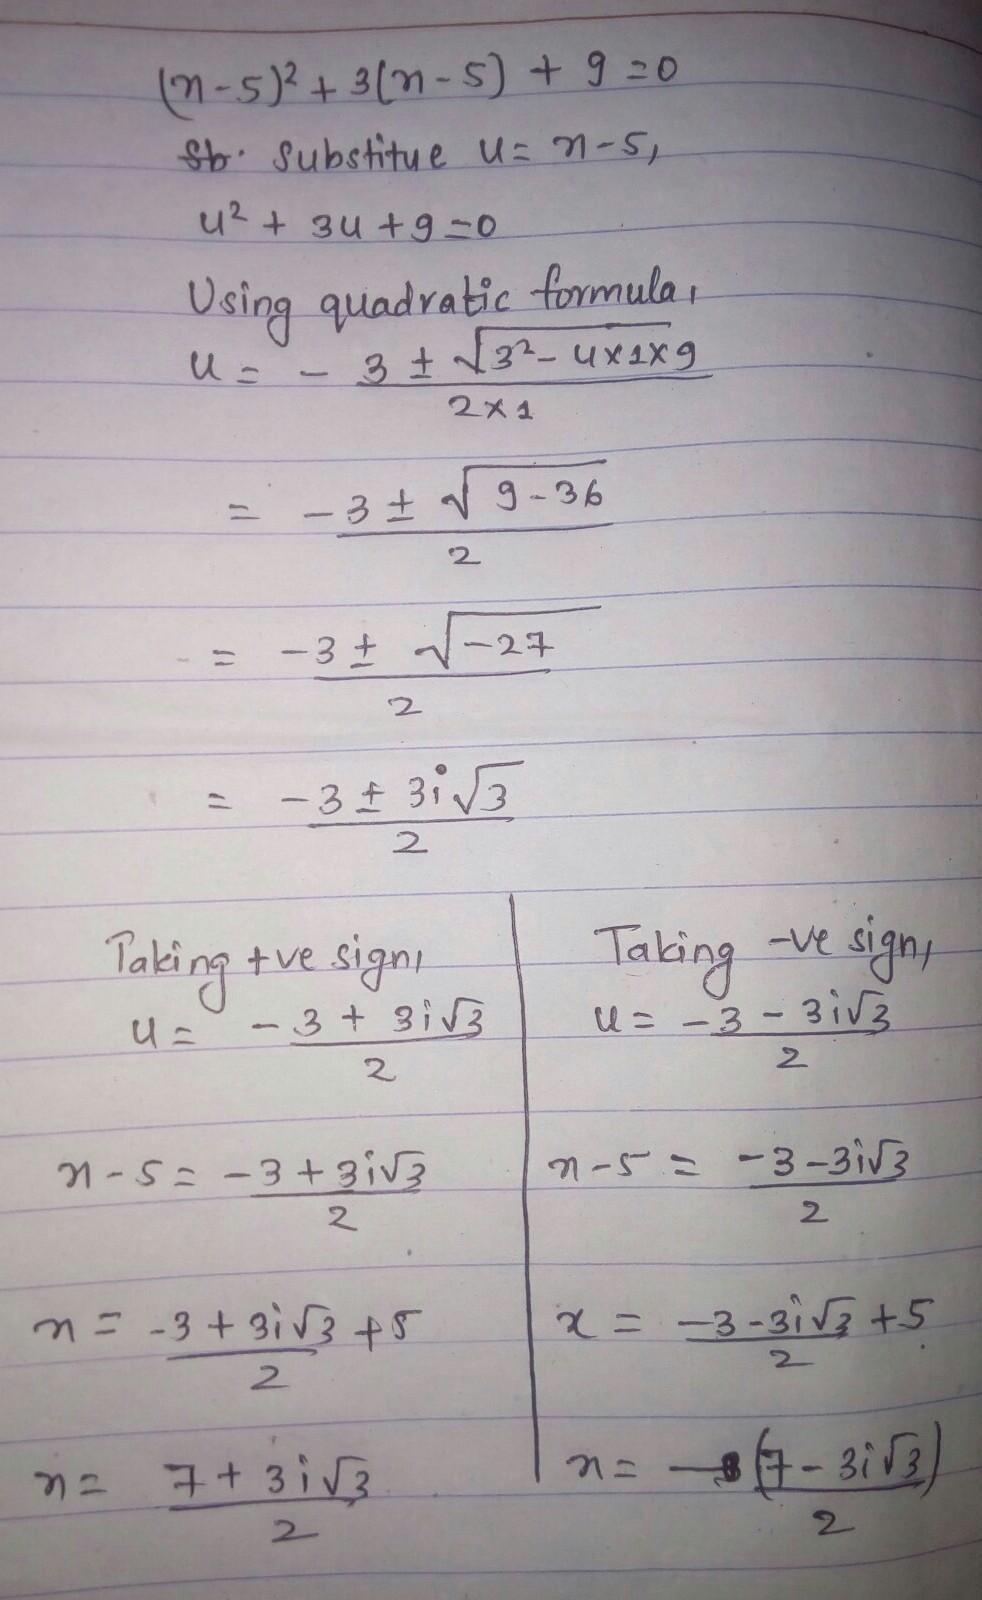 (x-5)² + 3(x-5) + 9 = 0
Sb. Substitue u = x-5,
u² + 3u + 9 = 0
Using quadratic formula,
u = -3 ± √3² - 4×1×9
2×1
= -3 ± √9-36
2
= -3 ± √-27
2
= -3 ± 3i√3
2
Taking +ve sign,
u = -3 + 3i√3
2
x-5 = -3 + 3i√3
2
x = -3 + 3i√3 + 5
2
x = 7 + 3i√3
2
Taking -ve sign,
u = -3 - 3i√3
2
x-5 = -3 - 3i√3
2
x = -3 - 3i√3 + 5
2
x = - (7 - 3i√3)
2